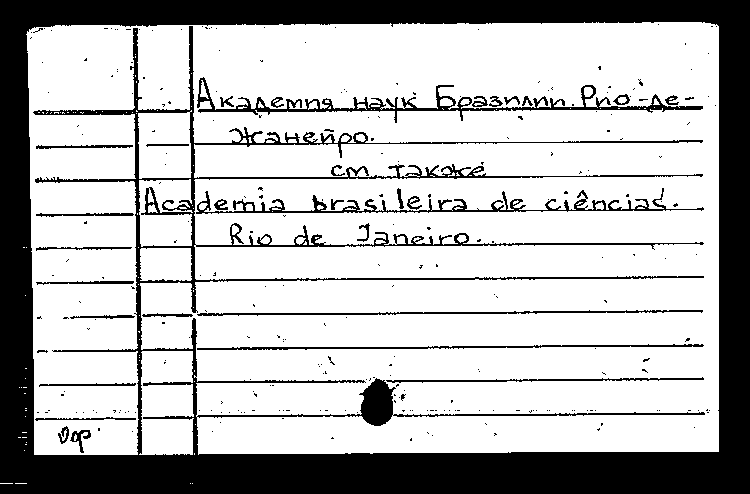 Академия наук Бразилии. Рио-де-
Жанейро.
см. также
Academia brasileira de ciências.
Rio de Janeiro.